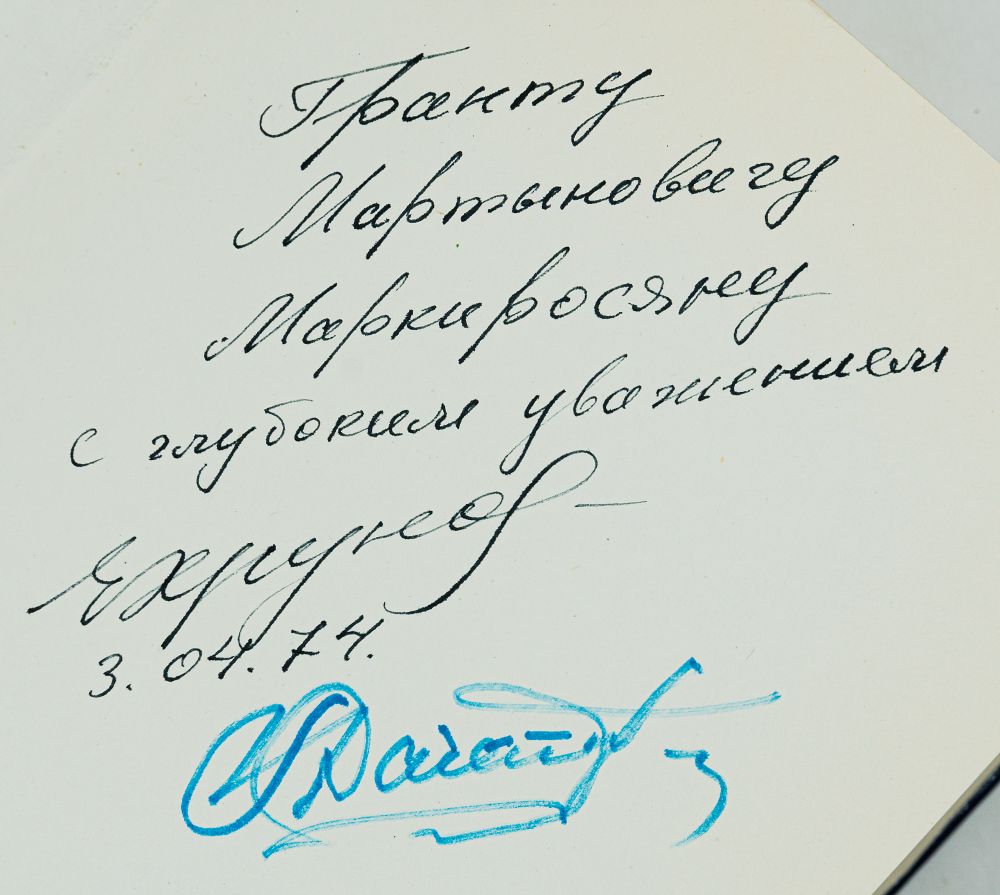 Гранту
Мартыновичу
Маркиросяну
с глубоким уважением
ЕХрунов
3.04.74.